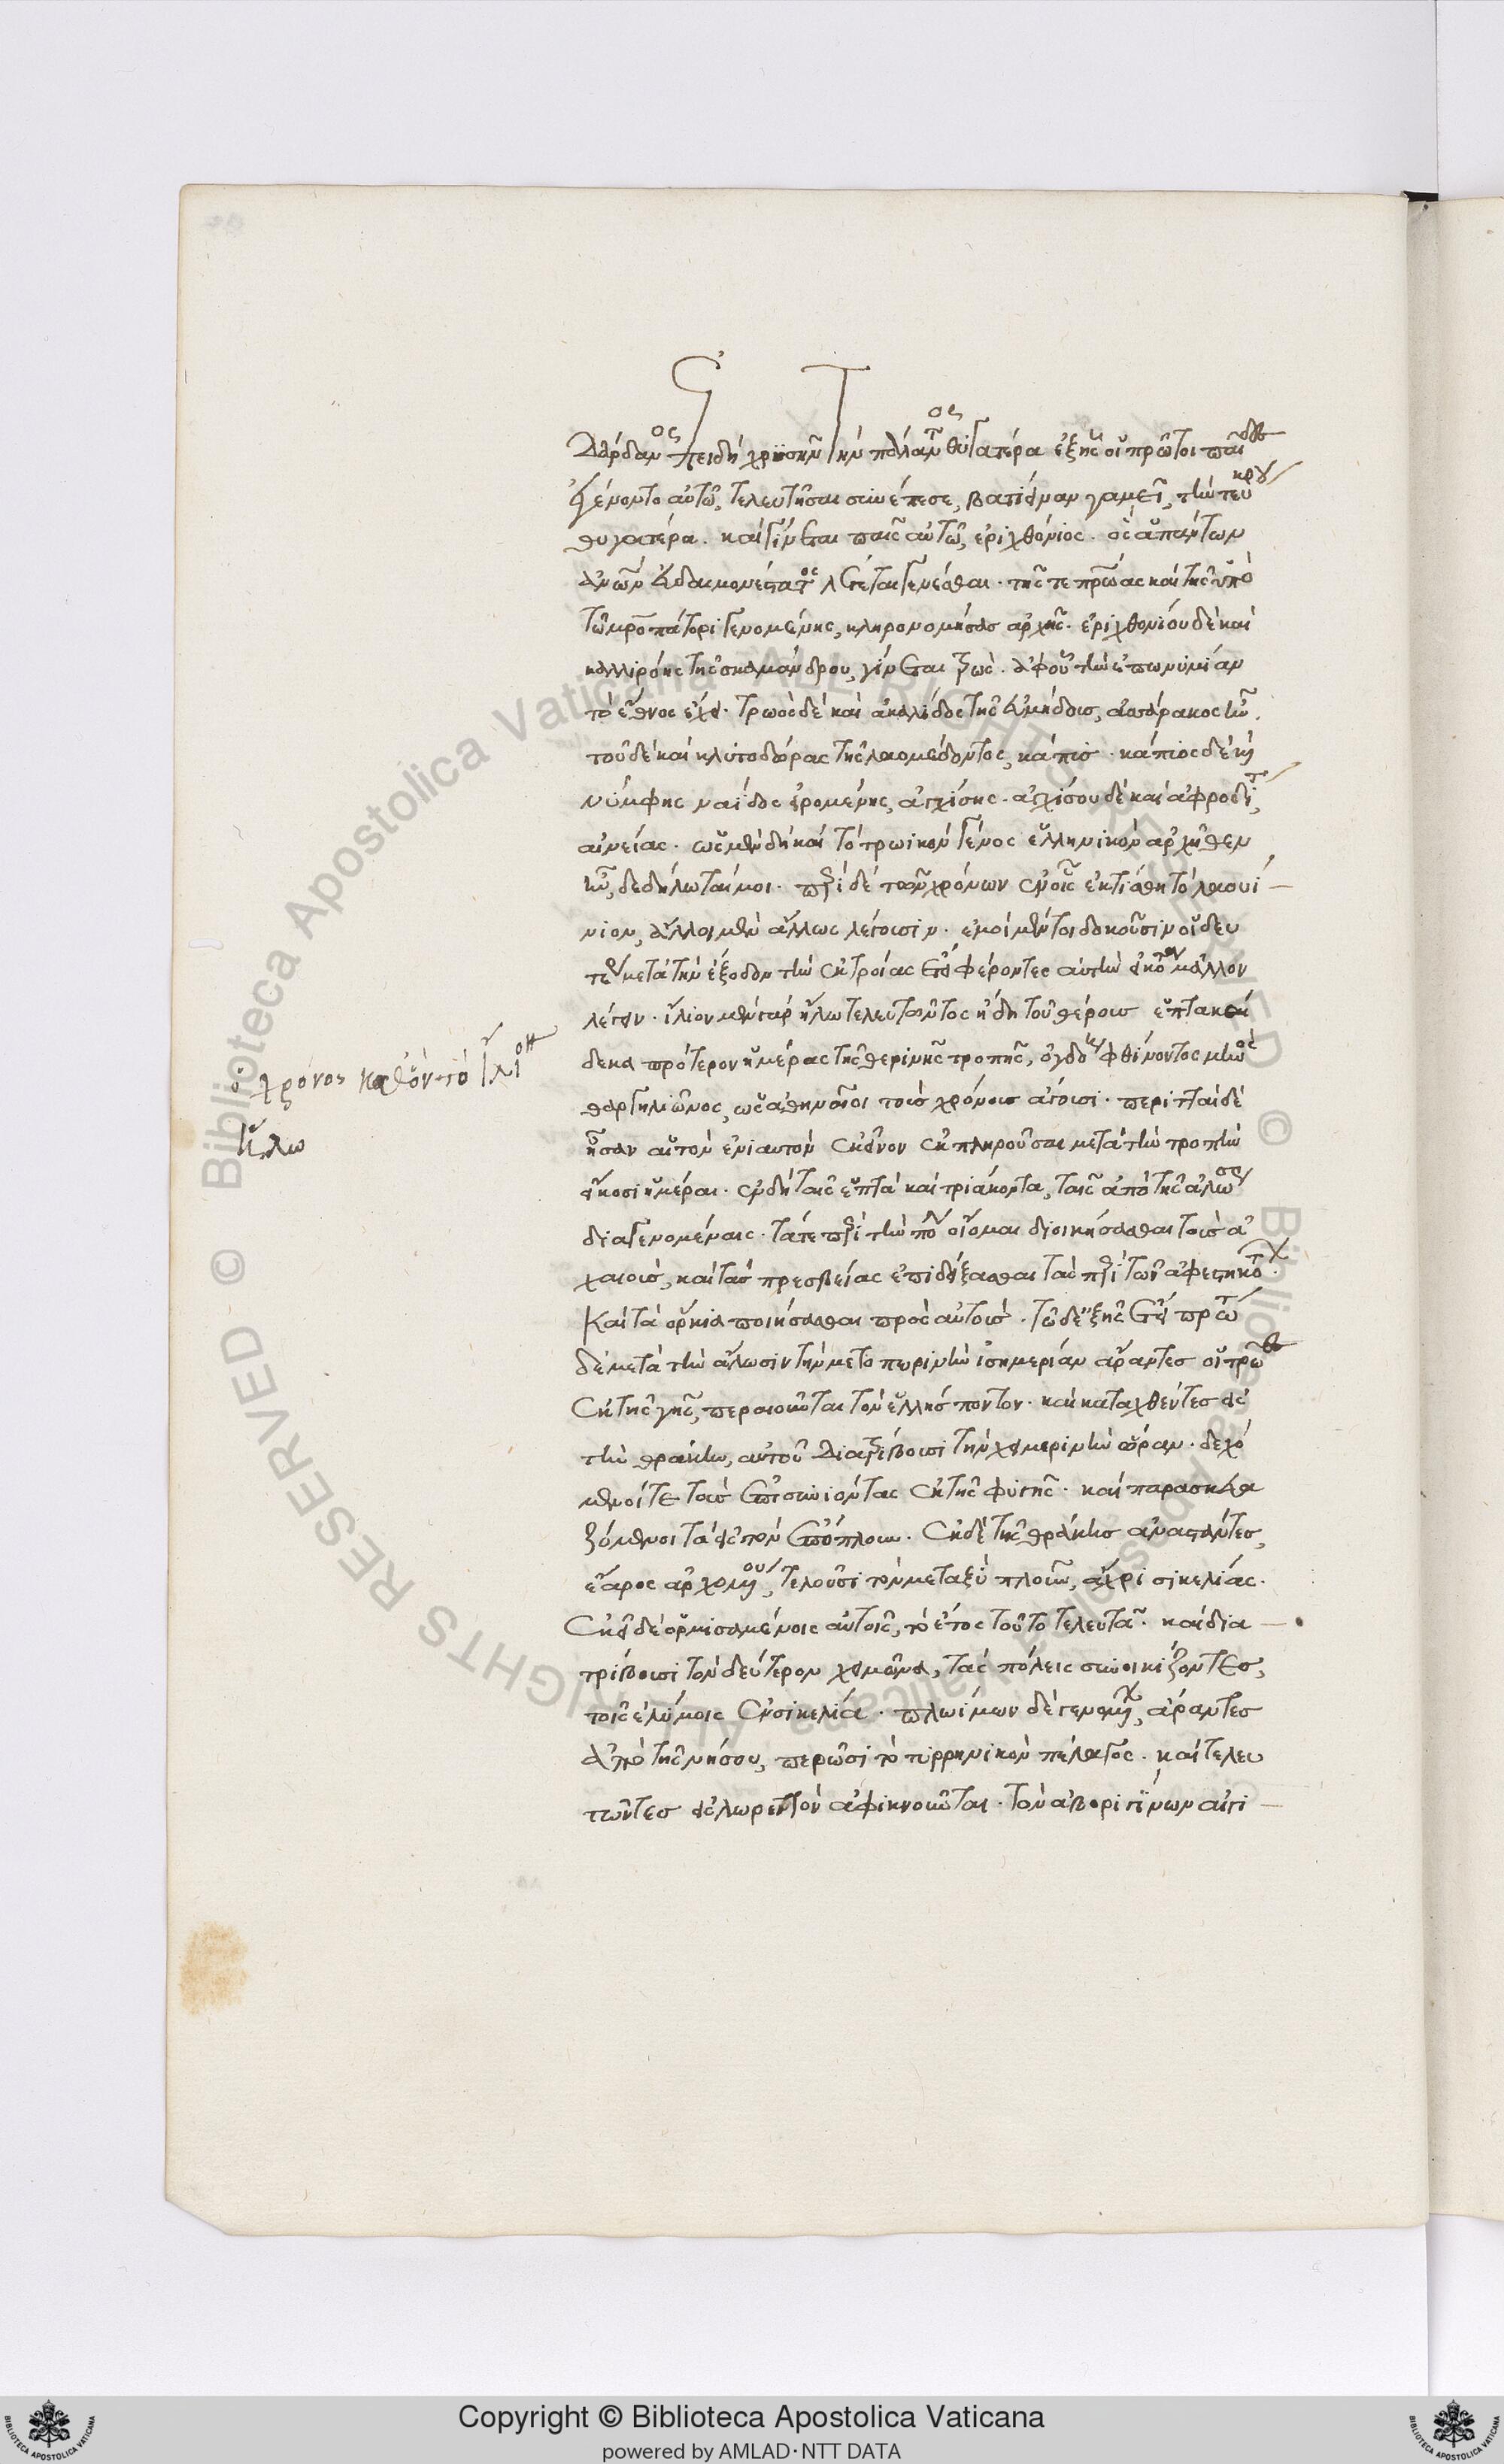 Δάρδανος ἐπειδὴ χρύσην τὴν πάλαντος θυγατέρα ἐξ ἧς οἱ πρῶτοι παῖδες
ἐγένοντο αὐτῶ, τελευτῆσαι συνέπεσε, βατίειναν γαμεῖ, τὴν τεύκρου
θυγατέρα. καὶ γίνεται παῖς αὐτῶ, ἐριχθόνιος. ὃς ἁπάντων
ἀνων εὐδαιμονέστατος λέγεται γενέσθαι. τῆς τε πρώας καὶ τῆς ὑπὸ
τῶ προπάτορι γενομένης, κληρονομήσας ἀρχῆς. ἐριχθονίου δὲ καὶ
καλλιρόης τῆς σκαμάνδρου, γίνεται τρωός. ἀφ' οὗ τὴν ἐπωνυμίαν
τὸ ἔθνος ἔχει. τρωὸς δὲ καὶ ἀκαλίδος τῆς εὐμήδους, ἀσσάρακος ἦν.
τοῦ δὲ καὶ κλυτοδώρας τῆς λαομέδοντος, κάπις. κάπιος δὲ καὶ
νύμφης ναΐδος ἱρομένης, ἀγχίσης. ἀγχίσου δὲ καὶ ἀφροδίτης,
αἰνείας. ὡς μὲν δὴ καὶ τὸ τρωϊκὸν γένος ἑλληνικὸν ἀρχῆθεν
ἦν, δεδήλωταί μοι. περὶ δὲ τῶν χρόνων ἐν οἷς ἐκτίσθη τὸ λαουΐ
νιον, ἄλλοι μὲν ἄλλως λέγουσιν. ἐμοὶ μέντοι δοκοῦσιν οἱ δευ
τέρω μετὰ τὴν ἔξοδον τὴν ἐκ τροίας ἔτει φέροντες αὐτὴν εἰκότα μᾶλλον
λέγειν. ἴλιον μὲν γὰρ ἥλω τελευτῶντος ἤδη τοῦ θέρους ἑπτακαί
δεκα πρότερον ἡμέρας τῆς θερινῆς τροπῆς, ὀγδόη φθίνοντος μηνὸς
θαργηλιῶνος, ὡς ἀθηναῖοι τοὺς χρόνους ἄγουσι. περιτταὶ δὲ
ἦσαν αἱ τὸν ἐνιαυτὸν ἐκεῖνον ἐκπληροῦσαι μετὰ τὴν τροπὴν
εἴκοσι ἡμέραι. ἐν δὴ ταῖς ἑπτὰ καὶ τριάκοντα, ταῖς ἀπὸ τῆς ἁλώσεως
διαγενομέναις. τά τε περὶ τὴν πόλιν οἴομαι διοικήσασθαι τοὺς ἀ
χαιοὺς, καὶ τὰς πρεσβείας ἐπιδέξασθαι τὰς περὶ τῶν ἀφεστηκότων.
καὶ τὰ ὅρκια ποιήσασθαι πρὸς αὐτούς. τῶ δ' ἑξῆς ἔτει πρώτω
δὲ μετὰ τὴν ἅλωσιν τὴν μετοπωρινὴν ἰσημερίαν ἄραντες οἱ τρῶες
ἐκ τῆς γῆς, περαιοῦνται τὸν ἑλλήσποντον. καὶ καταχθέντες εἰς
τὴν θράκην, αὐτοῦ διατρίβουσι τὴν χειμερινὴν ὥραν. δεχό
μενοί τε τοὺς ἐπισυνιόντας ἐκ τῆς φυγῆς. καὶ παρασκευα
ζόμενοι τὰ εἰς τὸν ἀπόπλουν. ἐκ δὲ τῆς θράκης ἀναστάντες,
ἔαρος ἀρχομένου, τελοῦσι τὸν μεταξὺ πλοῦν, ἄχρι σικελίας.
ἐκεῖ δὲ ὁρμισαμένοις αὐτοῖς, τὸ ἔτος τοῦτο τελευτᾶ. καὶ δια
τρίβουσι τὸν δεύτερον χειμῶνα, τὰς πόλεις συνοικίζοντες,
τοῖς ἐλύμοις ἐν σικελία. πλωΐμων δὲ γενομένων, ἄραντες
ἀπὸ τῆς νήσου, περῶσι τὸ τυρρηνικὸν πέλαγος. καὶ τελευ
τῶντες εἰς λωρεντὸν ἀφικνοῦνται. τὸν ἀβοριγΐνων αἰγι
ὁ χρόνος καθ' ὃν τὸ ἴλιον
ἥλω
Copyright © Biblioteca Apostolica Vaticana
powered by AMLAD·NTT DATA